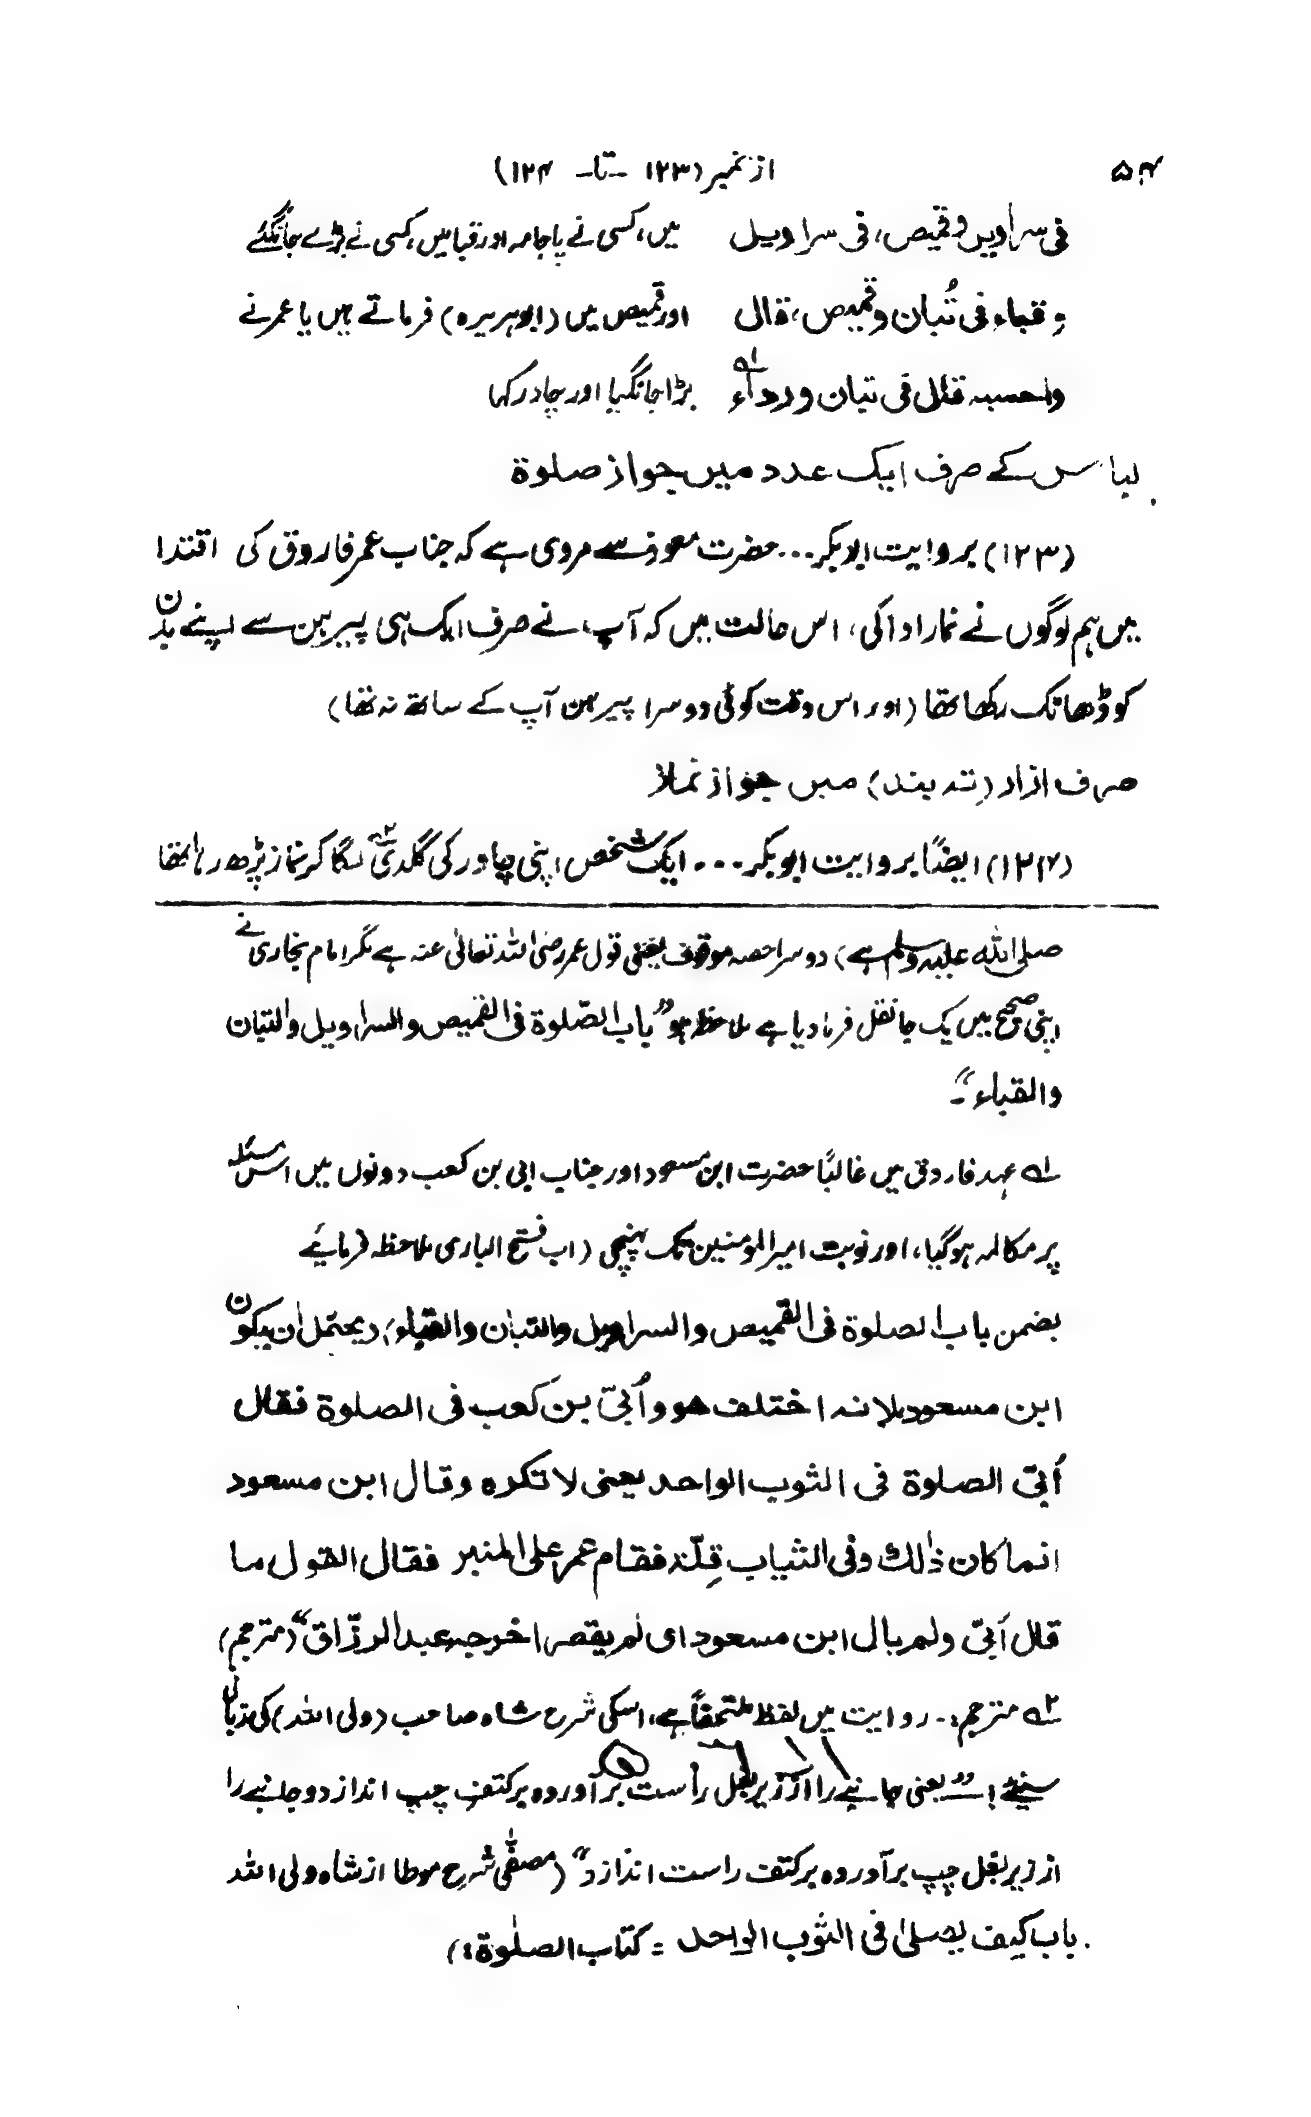 ۵۴
از نمبر (۱۲۳ -تا- ۱۲۴)
فی سراویل وقمیص، فی سراویل میں، کسی نے پاجامہ اور قبا میں، کسی نے بڑے جانگئے
وقباء فی تُبان وقمیص، قال اور قمیص میں (ابوہریرہ) فرماتے ہیں یا عمر نے
واحسبہ قال فی تبان ورداء ؎۱ بڑا جانگیا اور چادر کہا
لباس کے صرف ایک عدد میں جواز صلوة
(۱۲۳) بروایت ابوبکر... حضرت مسعود سے مروی ہے کہ جناب عمر فاروق کی اقتدا
میں ہم لوگوں نے نماز ادا کی، اس حالت میں کہ آپ نے صرف ایک ہی پیرہن سے اپنے بدن
کو ڈھانک رکھا تھا (اور اس وقت کوئی دوسرا پیرہن آپ کے ساتھ نہ تھا)
صرف ازار (تہ بند) میں جواز نماز
(۱۲۴) ایضًا بروایت ابوبکر... ایک شخص اپنی چادر کی گلدی ؎۲ لگا کر نماز پڑھ رہا تھا
صلی اللہ علیہ وسلم ہے) دوسرا حصہ موقوف یعنی قول عمر رضی اللہ تعالیٰ عنہ ہے مگر امام بخاری نے
اپنی صحیح میں یک جا نقل فرما دیا ہے ملاحظہ ہو "باب الصّلوة فی القمیص والسراویل والتبان
والقباء"۔
؎۱ عہد فاروقی میں غالبًا حضرت ابن مسعود اور جناب ابی بن کعب دونوں میں اس مسئلہ
پر مکالمہ ہوگیا، اور نوبت امیر المومنین تک پہنچی (اب فتح الباری ملاحظہ فرمائیے
بضمن باب الصلوة فی القمیص والسراویل والتبان والقباء) ویحتمل ان یکون
ابن مسعود لانہ اختلف ھو واُبیّ بن کعب فی الصلوة فقال
اُبیّ الصلوة فی الثوب الواحد یعنی لا تکرہ وقال ابن مسعود
انما کان ذٰلک وفی الثیاب قِلّة فقام عمر علی المنبر فقال القول ما
قال اُبیّ ولم یال ابن مسعود ای لم یقصر اخرجہ عبد الرزّاق" (مترجم)
؎۲ مترجم:۔ روایت میں لفظ ملتحفاً ہے، اسکی شرح شاہ صاحب (ولی اللہ) کی زبانی
سنیئے! "یعنی جانبے را از زیر بغل راست بر آوردہ بر کتف چپ انداز دو جانبے را
از زیر بغل چپ بر آوردہ بر کتف راست اندازد" (مصفّٰی شرح موطا از شاہ ولی اللہ
باب کیف یصلیٰ فی الثوب الواحد = کتاب الصلوٰة:)